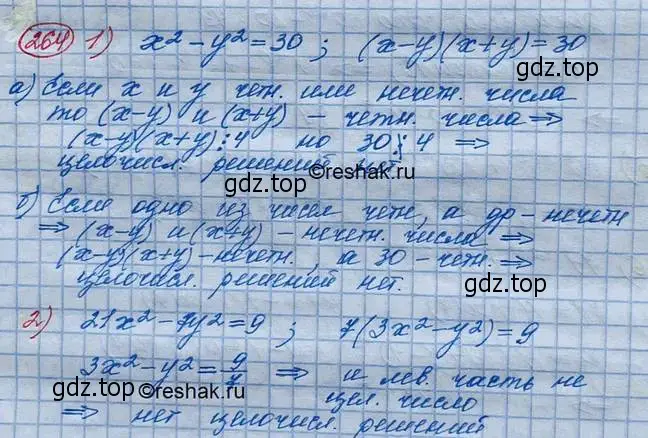 264 1) x² - y² = 30 ; (x-y)(x+y) = 30
gdz.top
а) Если x и y четн. или нечетн. числа
то (x-y) и (x+y) - четн. числа ⇒
(x-y)(x+y)⋮4 но 30⋮̸4 ⇒
целочисл. решений нет
gdz.top ©reshak.ru
б) Если одно из чисел четн, а др - нечетн
⇒ (x-y) и (x+y) - нечетн. числа ⇒
(x-y)(x+y) - нечетн., а 30 - четн. ⇒
целочисл. решений нет.
gdz.top
2) 21x² - 7y² = 9 ; 7(3x² - y²) = 9
3x² - y² = 9/7 ⇒ и лев. часть не
©reshak.ru
цел. число
⇒ нет целочисл. решений
gdz.top